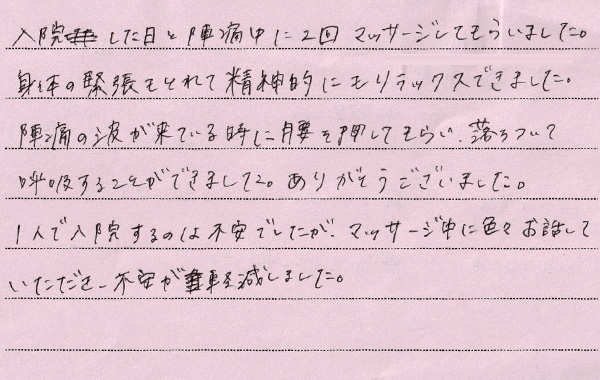 入院した日と陣痛中に2回 マッサージしてもらいました。
身体の緊張もとれて精神的にもリラックスできました。
陣痛の波が来ている時に腰を押してもらい、落ちついて
呼吸することができました。ありがとうございました。
1人で入院するのは不安でしたが、マッサージ中に色々お話して
いただき、不安が軽減しました。